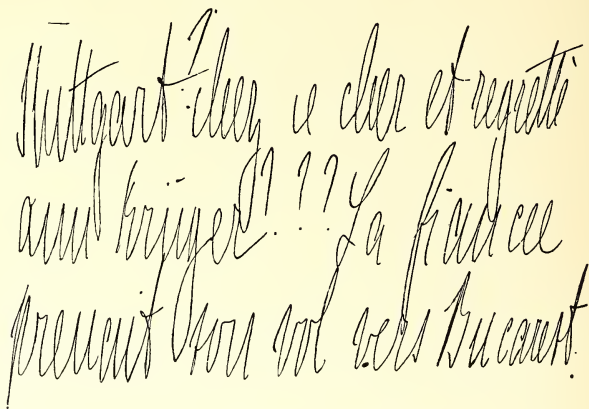 Stuttgart? chez ce cher et regretté
ami Krüger? ? ? La fiancée
prenait son vol vers Bucarest.